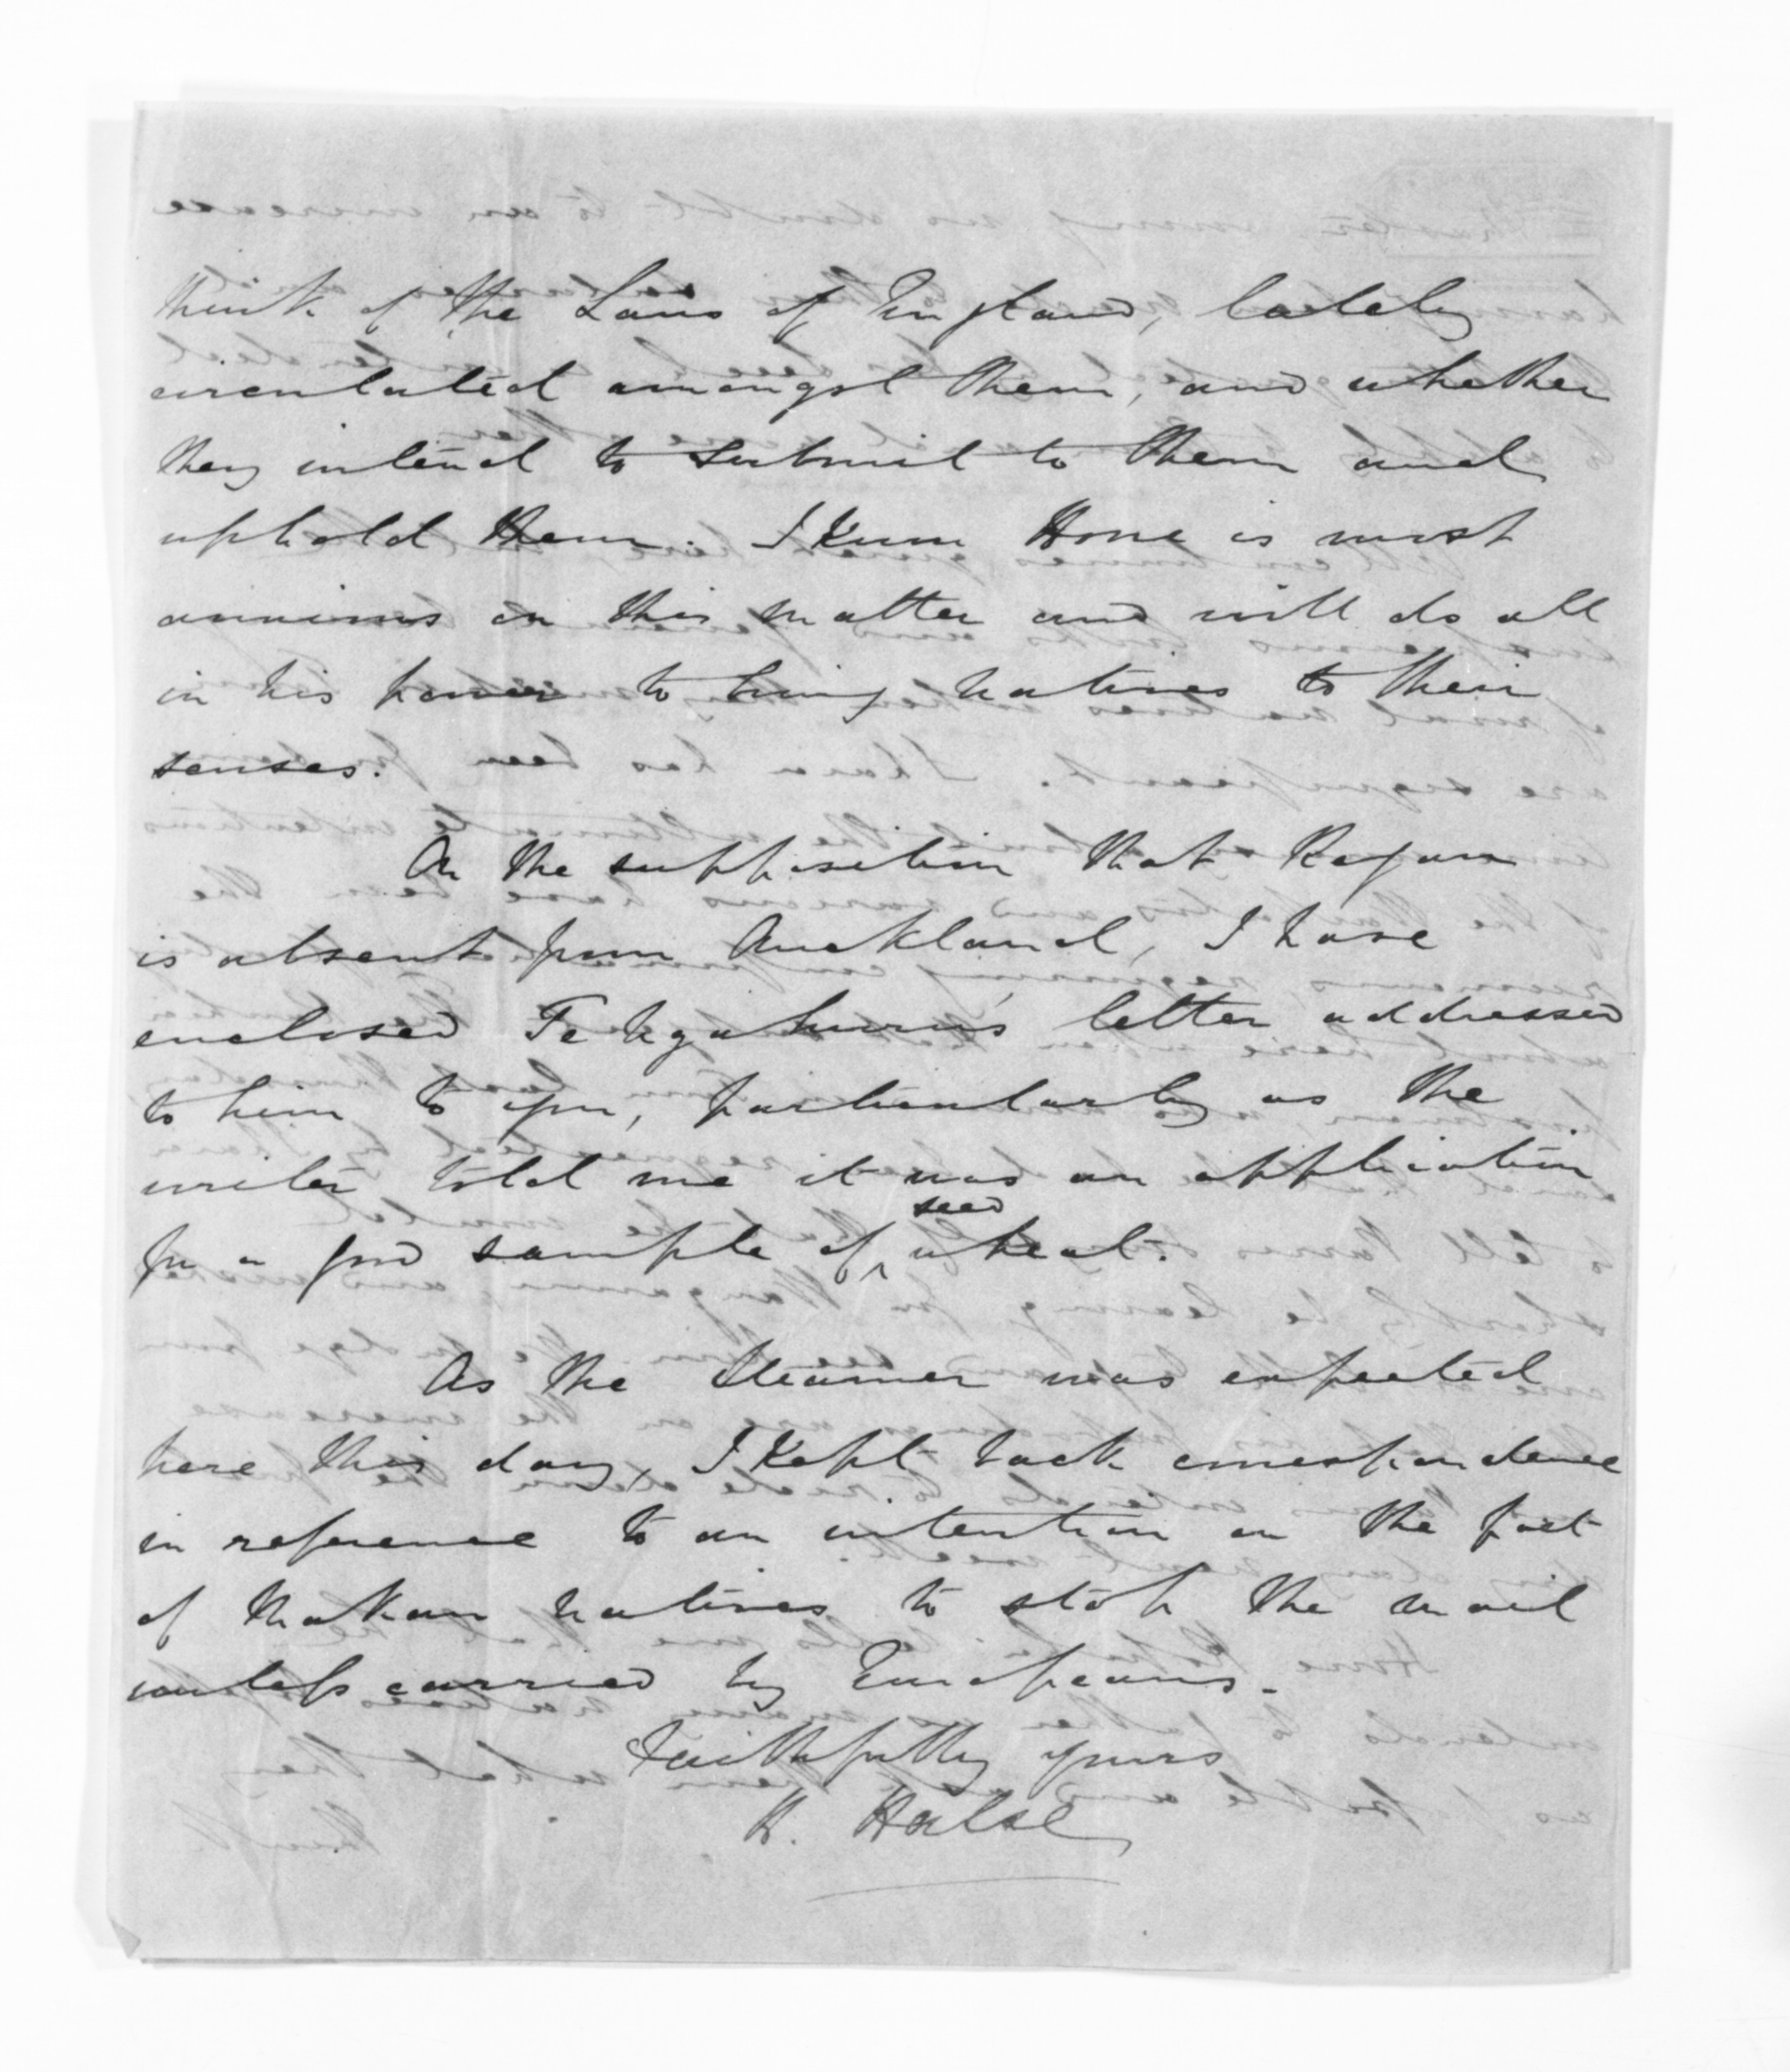 think of the Laws of England, lately
circulated amongst them, and whether
they intend to submit to them and
uphold them. I know Hone is most
anxious on this matter and will do all
in his power to bring natives to their
senses.
On the supposition that Rogan
is absent from Auckland, I have
enclosed Te Ngahuru's letter addressed
to him to you, particularly as the
writer told me it was an application
seed
for a good sample of wheat.
As the Steamer was expected
here this day, I kept back correspondence
in reference to an intention on the part
of Mokau natives to stop the mail
unless carried by Europeans.
Faithfully yours
H. Halse